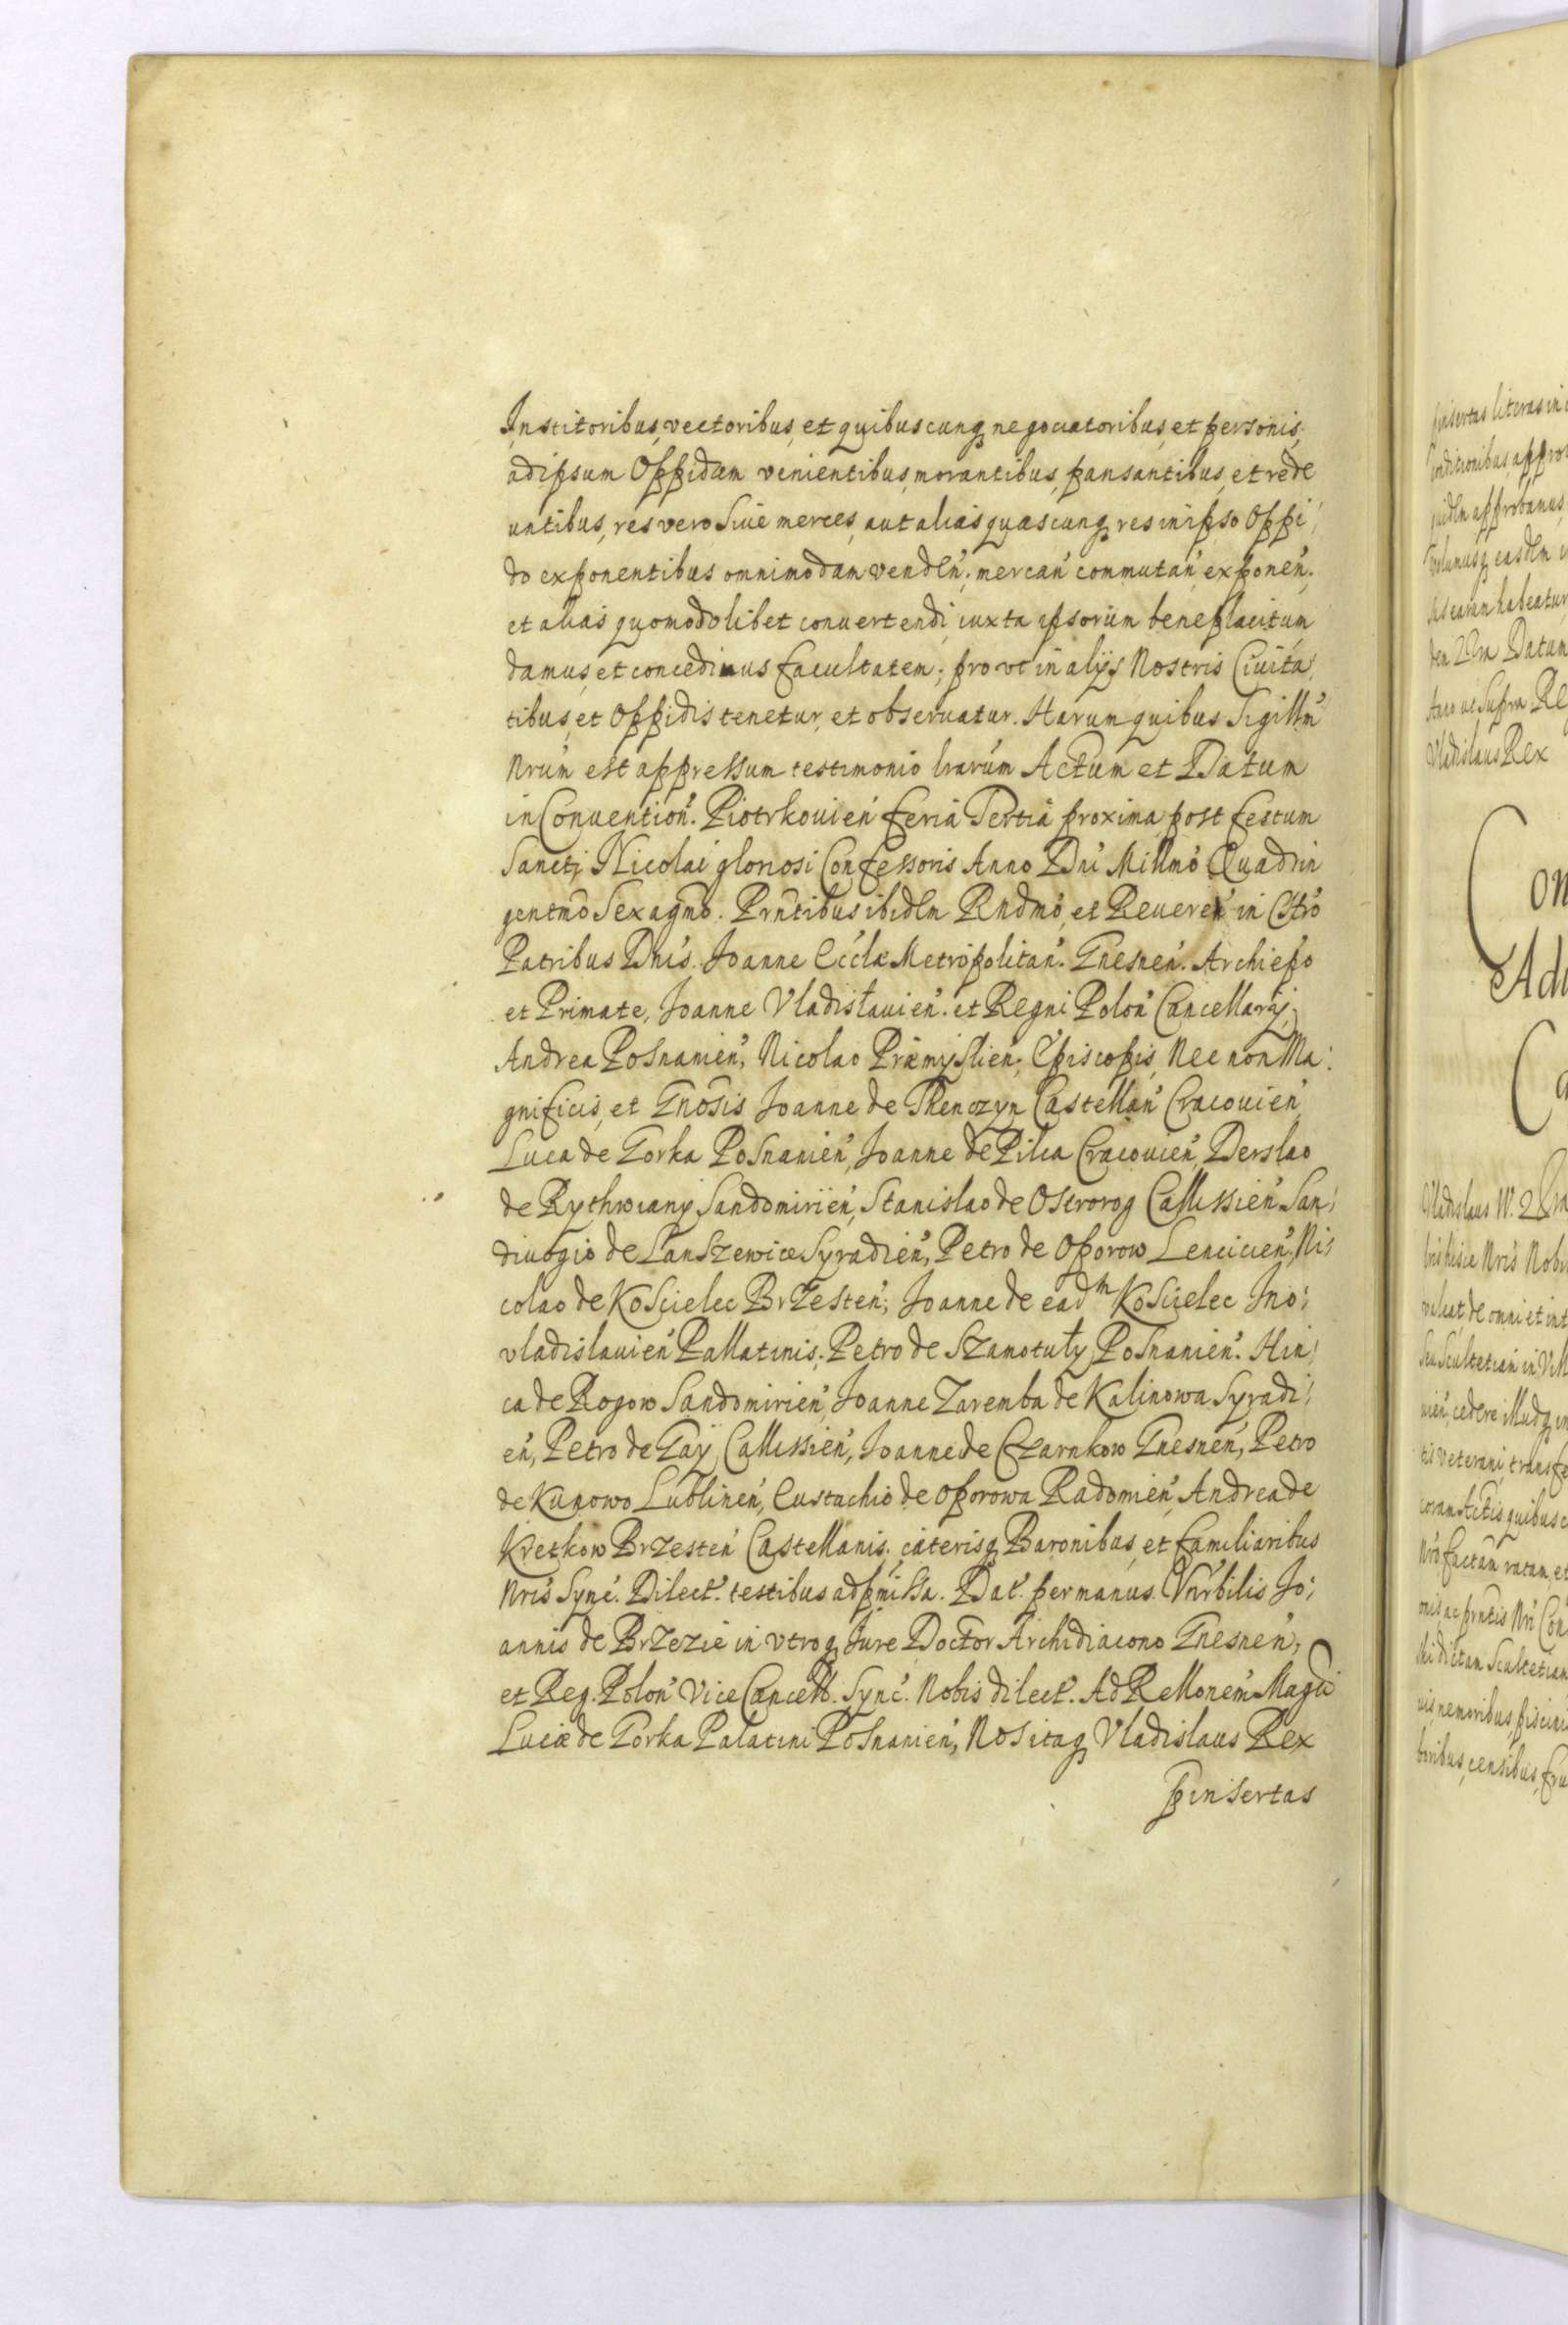 Institoribus, vectoribus, et quibuscunq negociatoribus, et personis,
ad ipsum Oppidum venientibus, morantibus, pansantibus, et rede
untibus, res vero siue merces, aut alias quascunq res in ipso Oppi
do exponentibus omnimodam vendeń, mercań commutań, exponeń.
et alias quomodolibet conuertendi, iuxta ipsorum beneplacitum
damus, et concedimus facultatem; pro vt in alijs Nostris Ciuita
tibus, et Oppidis tenetur, et obseruatur. Harum quibus Sigillm̃
Nrum est appressum testimonio lrarum Actum et Datum
in Convention̄. Piotrkouień feria Tertia proxima post festum
Sancti Nicolai gloriosi Confessoris Anno Dni Millmo Quadrin
gentmo Sexagmo. Prntibus ibidem Rndmo, et Reuereń in Chro
Patribus Dnis. Joanne Ecclæ Metropolitań. Gnesneń. Archiepo
et Primate, Joanne Vladislauień. et Regni Poloń Cancellarij,
Andrea Posnanień, Nicolao Præmyslień, Episcopis, Nec non Ma:
gnificis, et Gnosis Joanne de Thenczyn Castellań Cracouień,
Luca de Gorka Posnanień, Joanne de Pilca Cracouień, Derslao
de Rythwiany Sandomirień, Stanislao de Ostrorog Callissień San:
diuogio de Lanszewice Syradień, Petro de Oporow Lencicień, Ni:
colao de Koscielec Brzesteń, Joanne de eadm Koscielec Jno:
vladislauień Pallatinis, Petro de Szamotuły Posnanień. Hin:
ca de Rogow Sandomirień, Joanne Zaremba de Kalinowa Syradi:
eń, Petro de Gaÿ Callissień, Joanne de Czarnkow Gnesneń, Petro
de Kunowo Lublineń, Eustachio de oporowa Radomień, Andrea de
Kretkow Brzesteń Castellanis. cæterisq Baronibus, et familiaribus
Nris Sync. Dilect. testibus ad pmissa. Dat. per manus. Vnrbilis Jo:
annis de Brzezie in vtroq Jure Doctor Archidiacono Gnesneń,
et Reg. Poloń Vice Cancell. Sync. Nobis dilect. Ad Rellonem Magci
Lucæ de Gorka Palatini Posnanień, Nos itaq Vladislaus Rex
pinsertas
pinsertas literas in
conditionibus, appro
quidem approbamus,
Volumusq easdem
habeatur
Datum
supra Re
Vladislaus Rex
Con
Adu
C
Vladislaus IV.
Nris Nobi
de omni et int
seu Scultetiam in Vill
uień, cedere illudq in
tis Veterani, transfe
coram Actis quibusc
Nro factam ratam, et
Nri Con
dictam Scultetiam
uis, nemoribus, piscini
boribus, censibus, fru